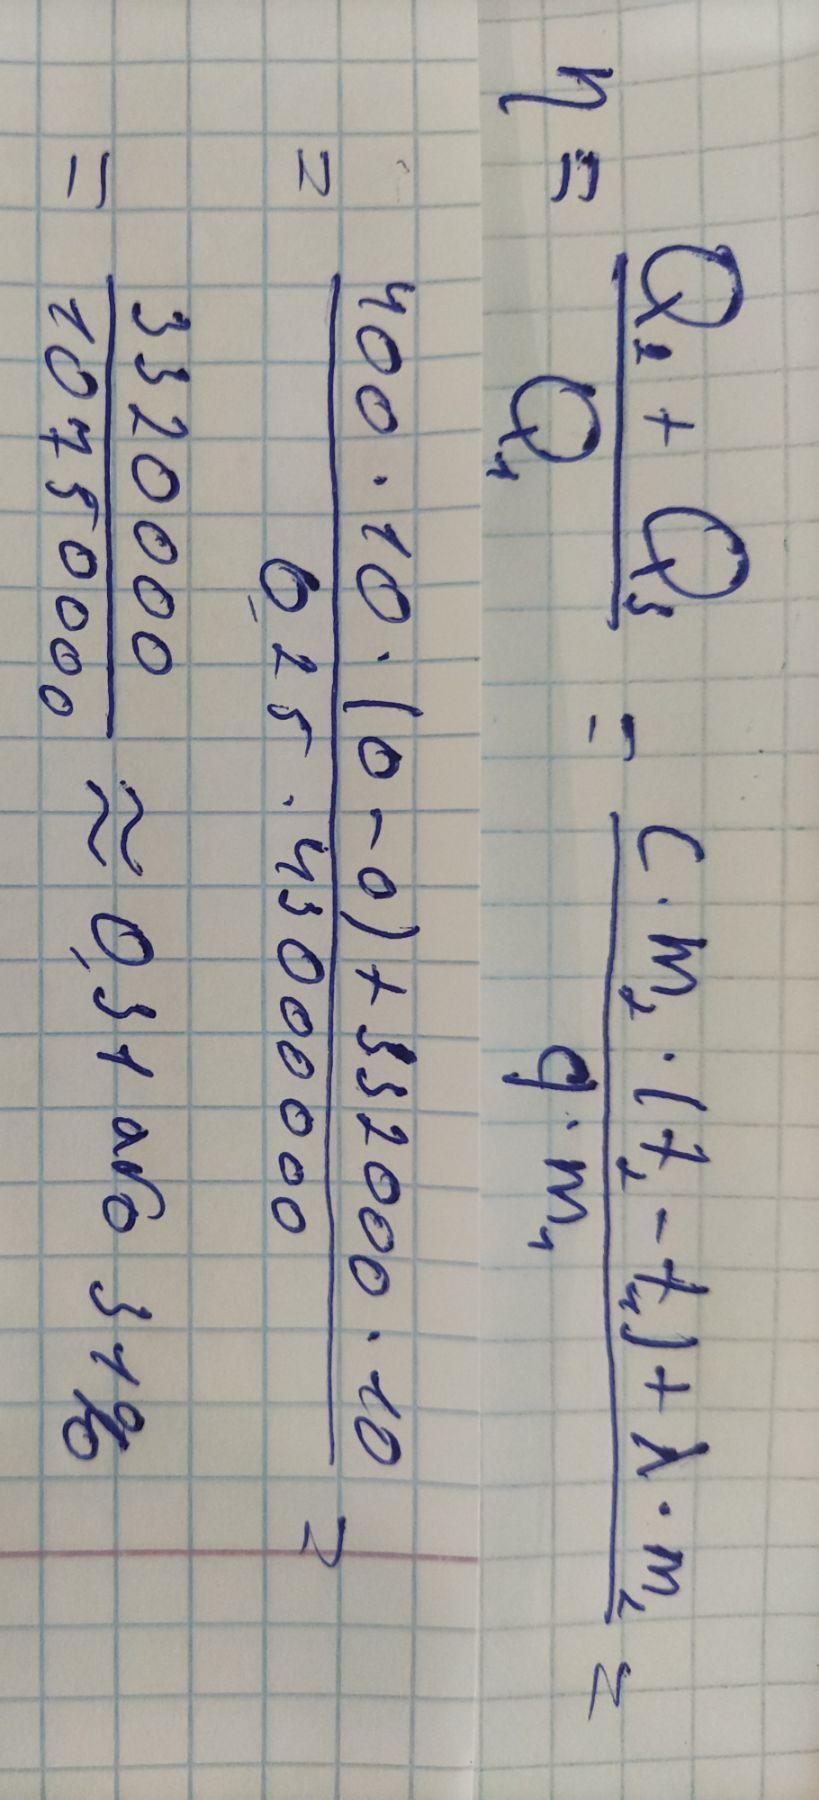 η = (Q₂ + Q₃) / Q₁ = (c · m₂ · (t₂ - t₁) + λ · m₂) / (q · m₁) =
= (400 · 10 · (0 - 0) + 332000 · 10) / (0,25 · 43000000) =
= 3320000 / 10750000 ≈ 0,31 або 31%